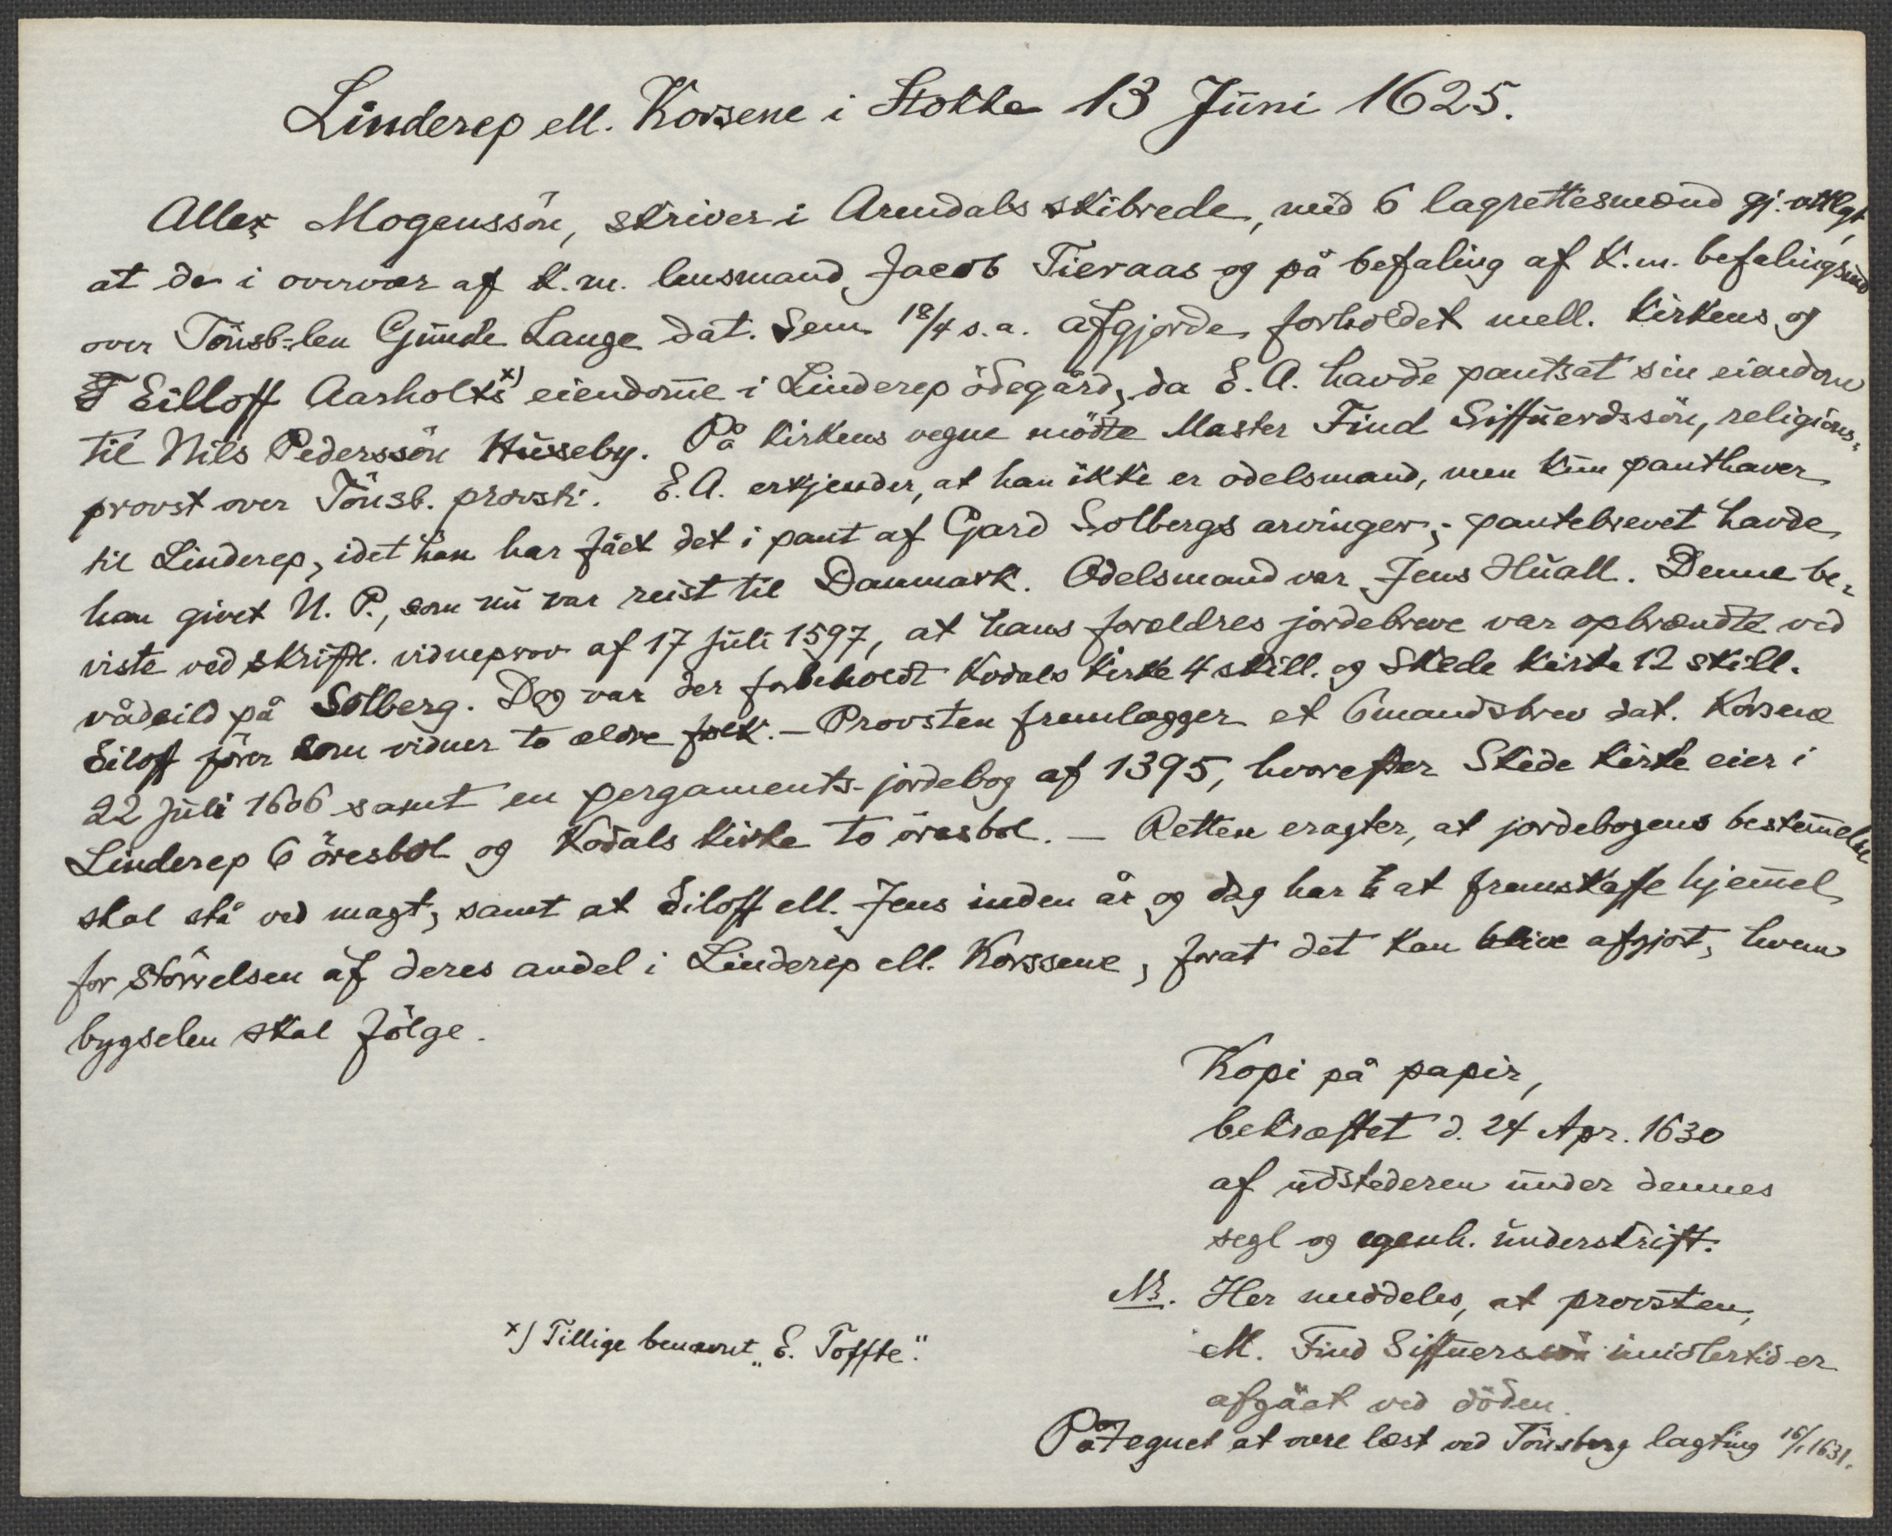 Linderep ell. Korsene i Stokke 13 Juni 1625.
Aller Mogenssön, skriver i Arendals skibrede, med 6 lagrettesmænd gj. vitlgt,
at de i overvær af K.m. lensmand Jacob Tieraas og på befaling af K.m. befalingsmd
over Tönsb-len Gunde Lange dat. Sem 18/4 s.a. afgjorde forholdet mell. kirkens og
Eilloff Aasholts x) eiendomme i Linderep ödegård, da E. A. havde pantsat sin eiendom
til Nils Pederssön Huseby. På kirkens vegne mödte Master Find Siffuerdssön, religions-
provst over Tönsb. provsti. E.A. erkjender, at han ikke er odelsmand, men kun panthaver
til Linderep, idet han har fået det i pant af Gard Solbergs arvinger; pantebrevet havde
han givet N. P., som nu var reist til Danmark. Odelsmand var Jens Huall. Denne be-
viste ved skriftl. vidneprov af 17 Juli 1597, at hans forældres jordebreve var opbrændte ved
vådeild på Solberg. Dog var der forbeholdt Kodals kirke 4 skill. og Skede kirke 12 skill.
Eiloff förer som vidner to ældre folk. — Provsten fremlægger et 6mandsbrev dat. Korsene
22 Juli 1606 samt en pergaments-jordebog af 1395, hvorefter Skede kirke eier i
Linderep 6 öresbol og Kodals kirke to öresbol. — Retten eragter, at jordebogens bestemmelse
skal stå ved magt, samt at Eiloff ell. Jens inden år og dag har at fremskaffe hjemmel
for störrelsen af deres andel i Linderep ell. Korssene, forat det kan blive afgjort, hvem
bygselen skal fölge.
Kopi på papir,
bekræftet d. 24 Apr. 1630
af udstederen under dennes
segl og egenh. underskrift.
NB. Her meddeles, at provsten,
M. Find Siffuerssön imidlertid er
afgået ved döden.
x) Tillige benævnt „E. Toffte".
Påtegnet at være læst ved Tönsberg lagting 16/1 1631.